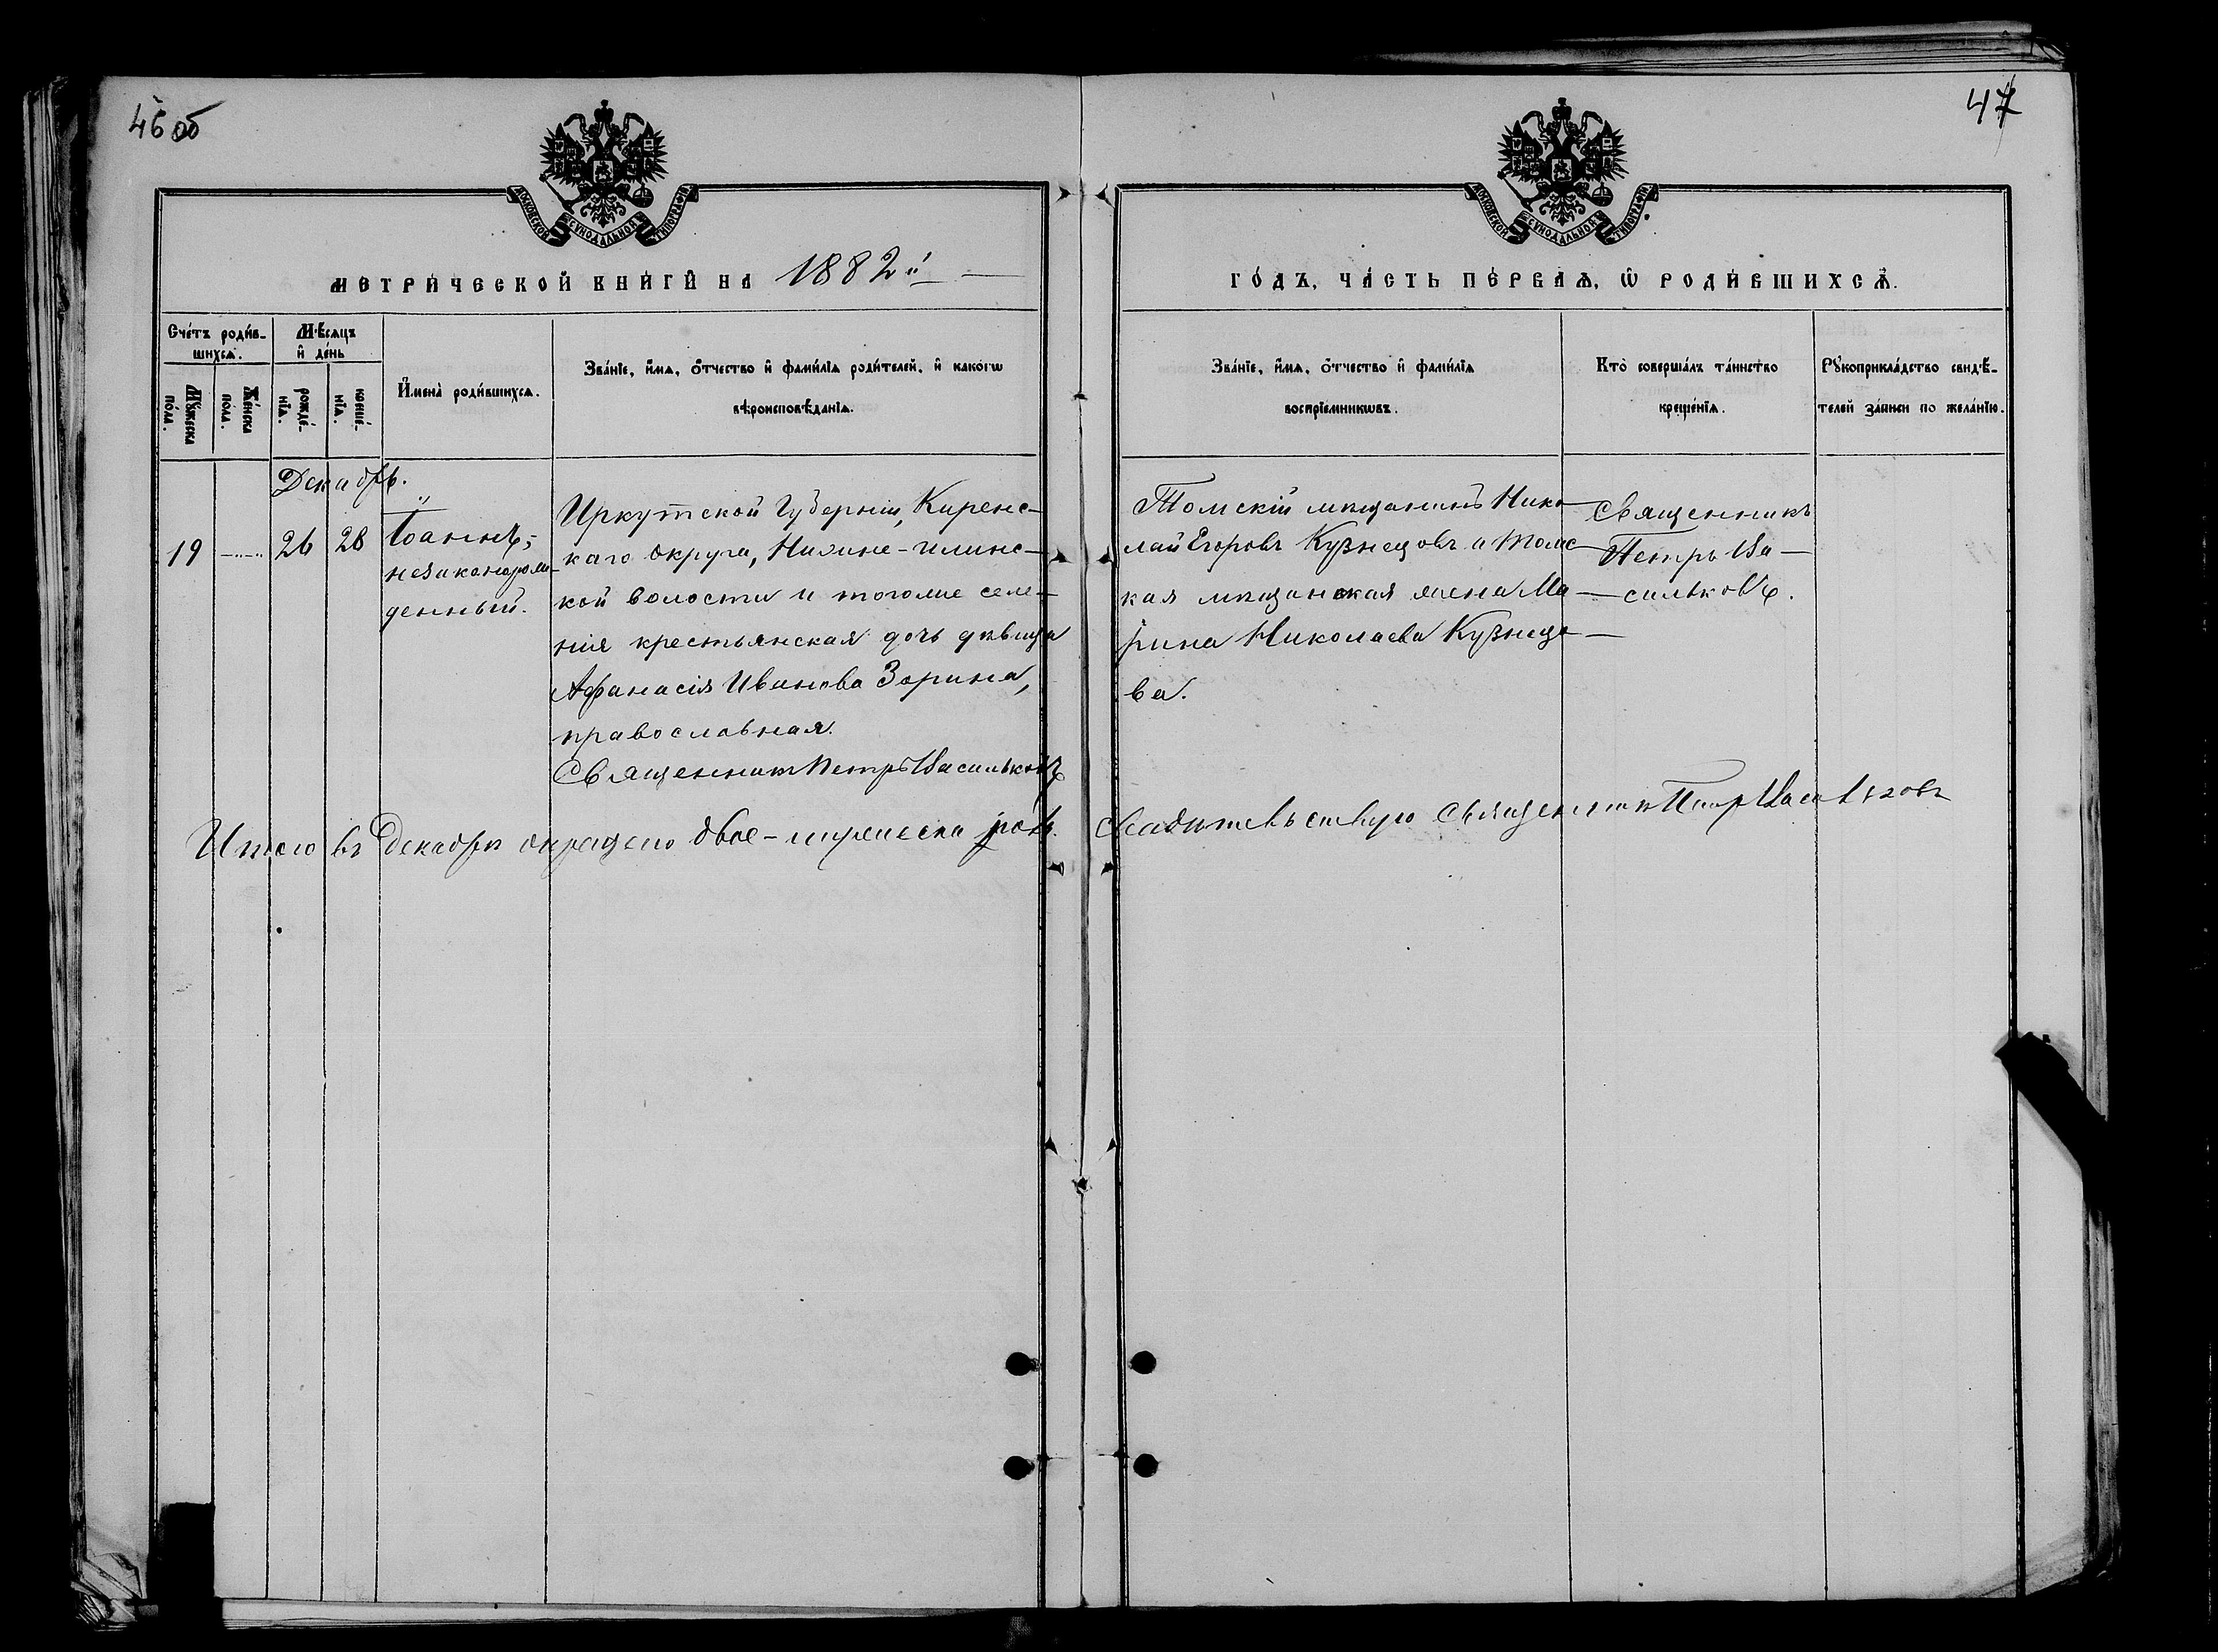 46 об
47
МОСКОВСКОЙ СѴНОДАЛЬНОЙ ТИПОГРАФІИ
МОСКОВСКОЙ СѴНОДАЛЬНОЙ ТИПОГРАФІИ
МЕТРИ́ЧЕСКОЙ КНИ́ГИ НА 1882й
ГО́ДЪ, ЧА́СТЬ ПЕ́РВАѦ, Ѡ҆ РОДИ́ВШИХСѦ.
Сче́тъ роди́в-
шихсѧ.
Мꙋ́жеска по́ла.
Же́нска по́ла.
Мѣ́сѧцъ
и҆ де́нь
рожде́-
нїѧ.
креще́-
нїѧ.
И҆мена̀ роди́вшихсѧ.
Зва́нїе, и҆́мѧ, ѻ҆́тчество и҆ фами́лїѧ роди́телей, и҆ како́гѡ
вѣроисповѣ́данїѧ.
Зва́нїе, и҆́мѧ, ѻ҆́тчество и҆ фами́лїѧ
воспрїе́мникѡвъ.
Кто̀ соверша́лъ та́инство
креще́нїѧ.
Рꙋкоприкла́дство свидѣ́-
телей за́писи по жела́нїю.
Декабрь.
19
26
28
Іоаннъ,-
незаконорож-
денный.
Иркутской Губерніи, Киренс-
каго округа, Нижне-Илимс-
кой волости и тогоже селе-
нія крестьянская дочь дѣвица
Афанасія Иванова Зорина,
православная.
Священникъ Петръ Васильковъ
Томскій мѣщанинъ Нико-
лай Егоровъ Кузнецовъ и томс-
кая мѣщанская жена Ма-
рина Николаева Кузнецо-
ва.
Священникъ
Петръ Ва-
сильковъ.
Итого въ Декабрѣ окрещено двое - мужеска пола. Свидѣтельствую Священникъ Петръ Васильковъ